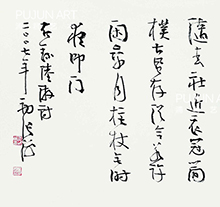 隨春社近衣冠簡
樸古風存從今若許
閑乘月拄杖無時
夜叩门
陸游詩
二〇〇七年